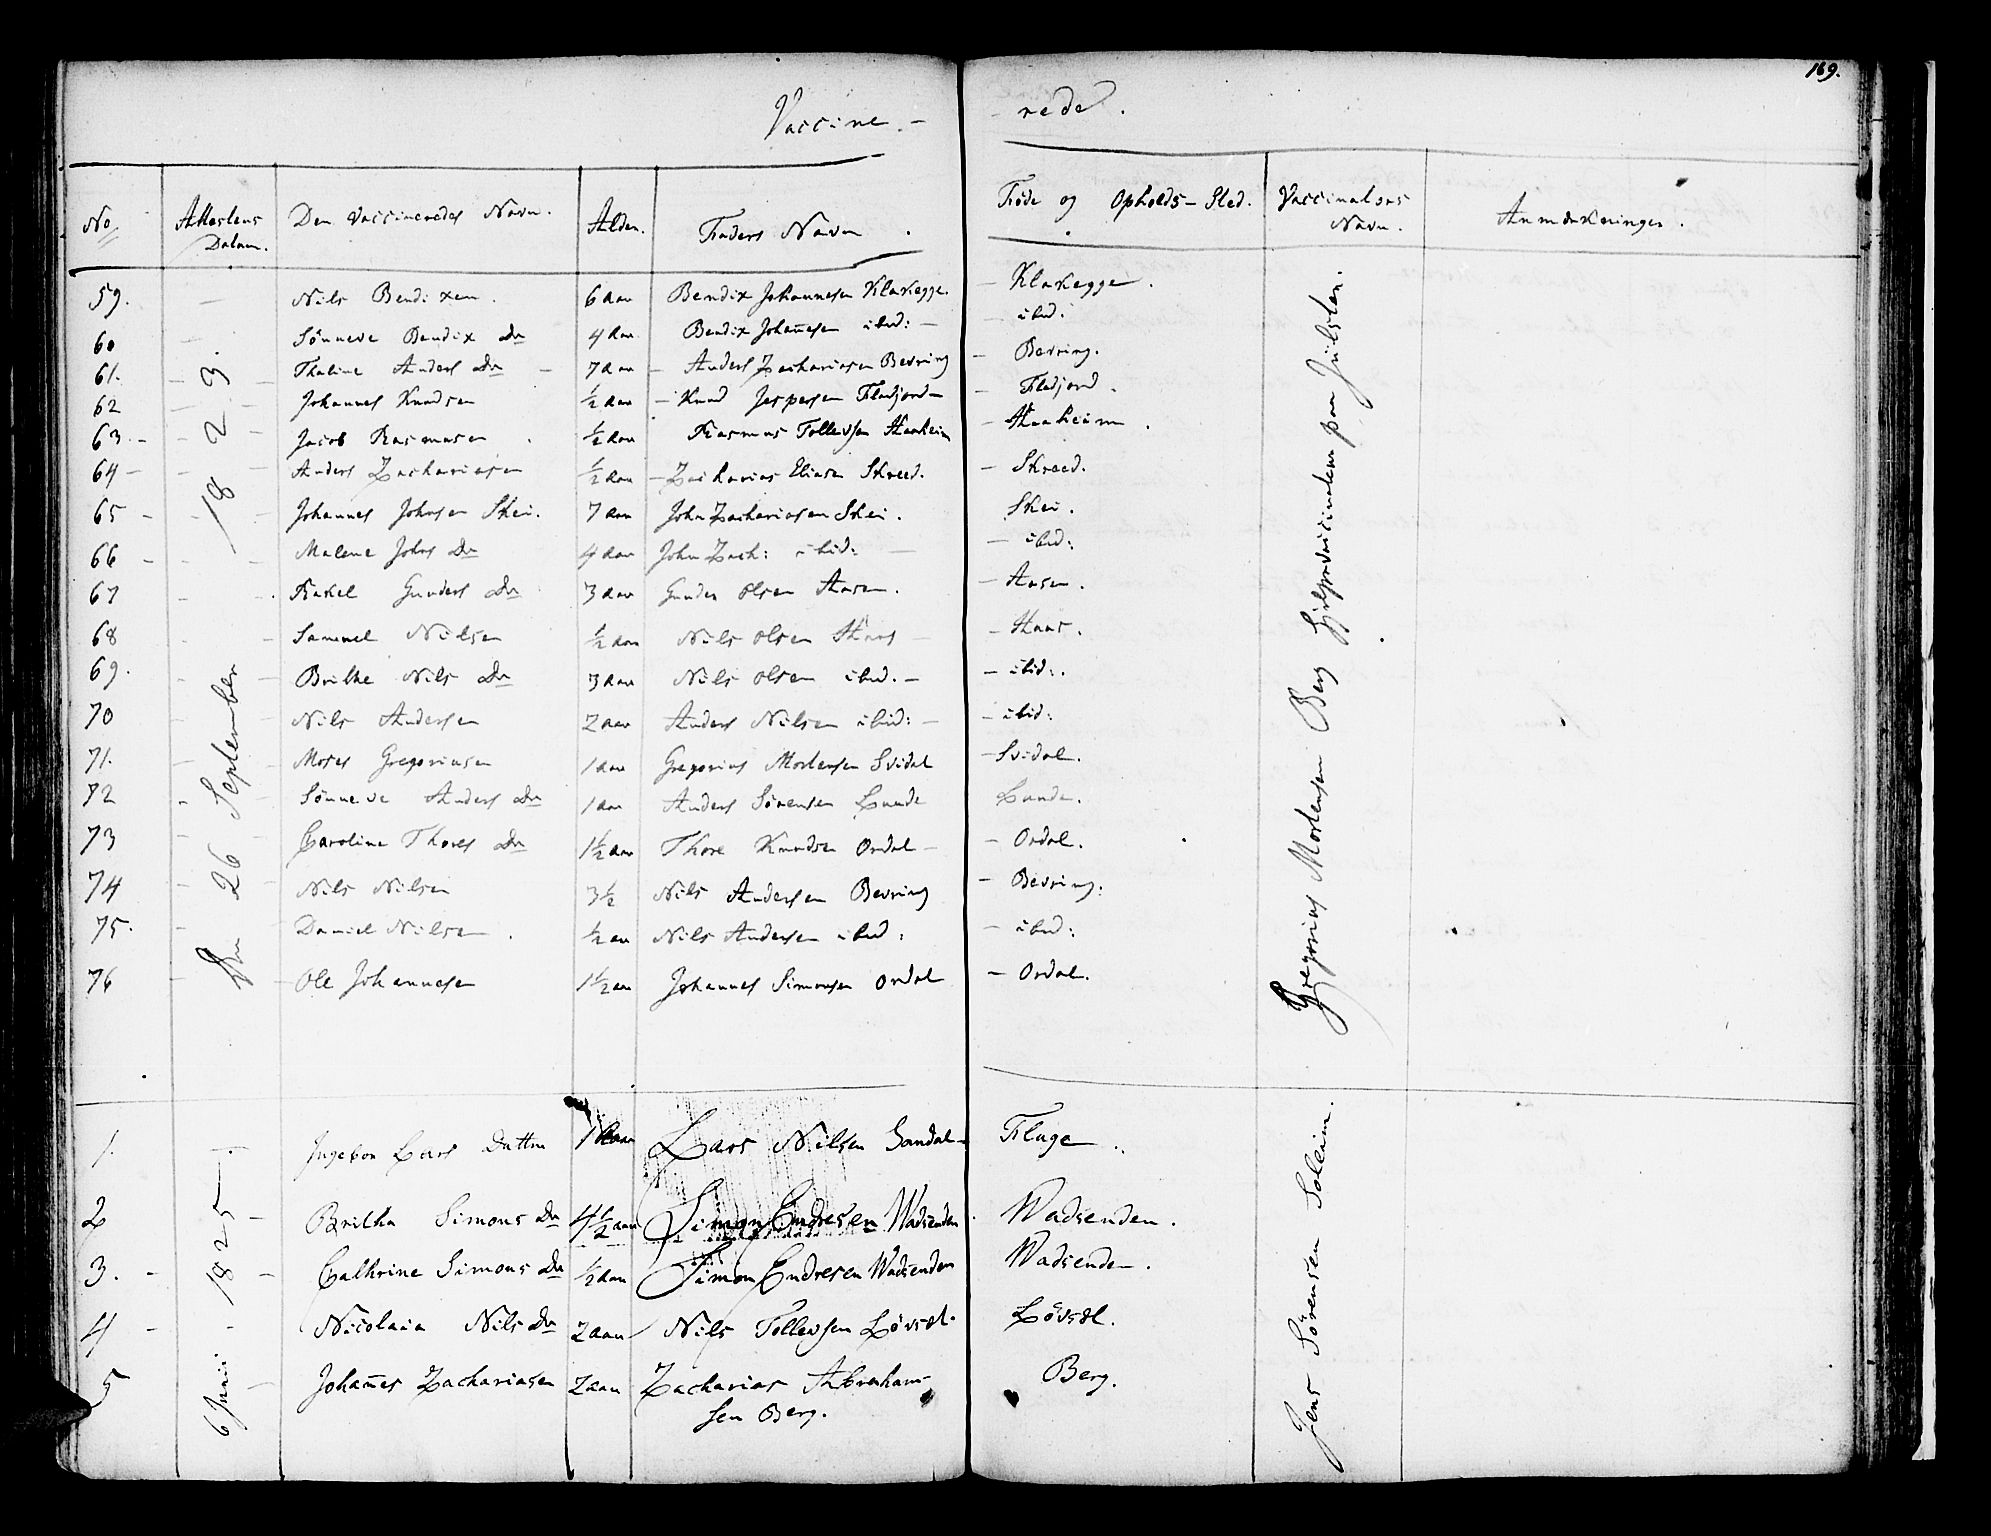 169.
Vaccine - rede.
No Attestens Datum. Den Vaccineredes Navn. Alder. Faders Navn. Føde og Opholds-Sted. Vaccinators Navn. Anmærkninger.
Den 26 September 1823.
Gregorius Mortensen Berg Hjelpevaccinateur paa Jülster.
59. Nils Bendixen. 6 aar Bendix Johannesen Klakegge. - Klakegge.
60 Sønneve Bendix Dr 4 aar Bendix Johan̄esen ibid: - ibid:
61. Thaline Anders Dr - 7 aar - Anders Zachariasen Bevring - Bevring.
62 Johannes Knudsen ½ aar - Knud Jespersen Fladjord - Fladjord.
63. - Jacob Rasmusen ½ aar Rasmus Tollevsen Haaheim - Haaheim.
64 - Anders Zachariasen ½ aar - Zacharias Eliasen Skreed. - Skreed.
65 - Johannes Johnsen Skei. 7 aar John Zachariasen Skei. Skei.
66 - Malene Johns Dr 4 aar John Zach: ibid: - ibid:
67 Rakel Gunders Dr 3 aar Gunder Olsen Aasen. - Aasen.
68 Samuel Nilsen ½ aar Nils Olsen Huus - Huus.
69. Brithe Nils Dr 3 aar Nils Olsen ibid. - ibid:
70 Nils Andersen 2 aar Anders Nilsen ibid: - ibid:
71. Moses Gregoriusen 1 aar Gregorius Mortensen Svidal - Svidal.
72 Sønneve Anders Dr 1 aar Anders Sørensen Lunde Lunde.
73 Caroline Thores Dr 1½ aar Thore Knudsen Ordal - Ordal.
74 Nils Nilsen 3½ Nils Andersen Bevring - Bevring:
75. Daniel Nilsen. ½ aar Nils Andersen ibid: - ibid:
76 Ole Johannesen 1½ aar Johannes Simonsen Ordal - Ordal.
6 Junii 1825
Jens Sörensen Soleim.
1. Ingebor Lars Datter 1 aar Lars Nilsen Sandal - Fluge.
2 Britha Simons Dr 4½ aar Simon Endresen Wadsenden. Wadsenden.
3. - Cathrine Simons Dr ½ aar Simon Endresen Wadsenden Wadsenden.
4 - Nicolaia Nils Dr 2 aar Nils Tollevsen Lövsdl. Lövsdl.
5 Johan̄es Zachariasen 2 aar Zacharias Abraham- Berg.
sen Berg.